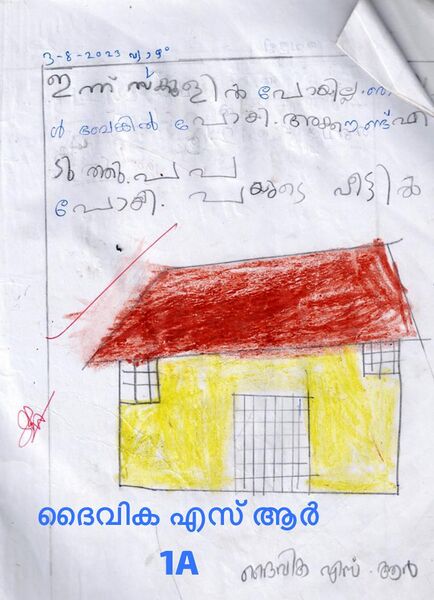 3-8-2023 വ്യാഴം
ഇന്ന് സ്ക്കൂളിൽ പോയില്ല. ഞ
ൾ ബേങ്കിൽ പോകി. അക്കൗണ്ട് എ
ടുത്തു. പ പ
പോയി. പ്പയുടെ വീട്ടിൽ
ദൈവിക എസ് ആർ
1A
ദൈവിക എസ്. ആർ